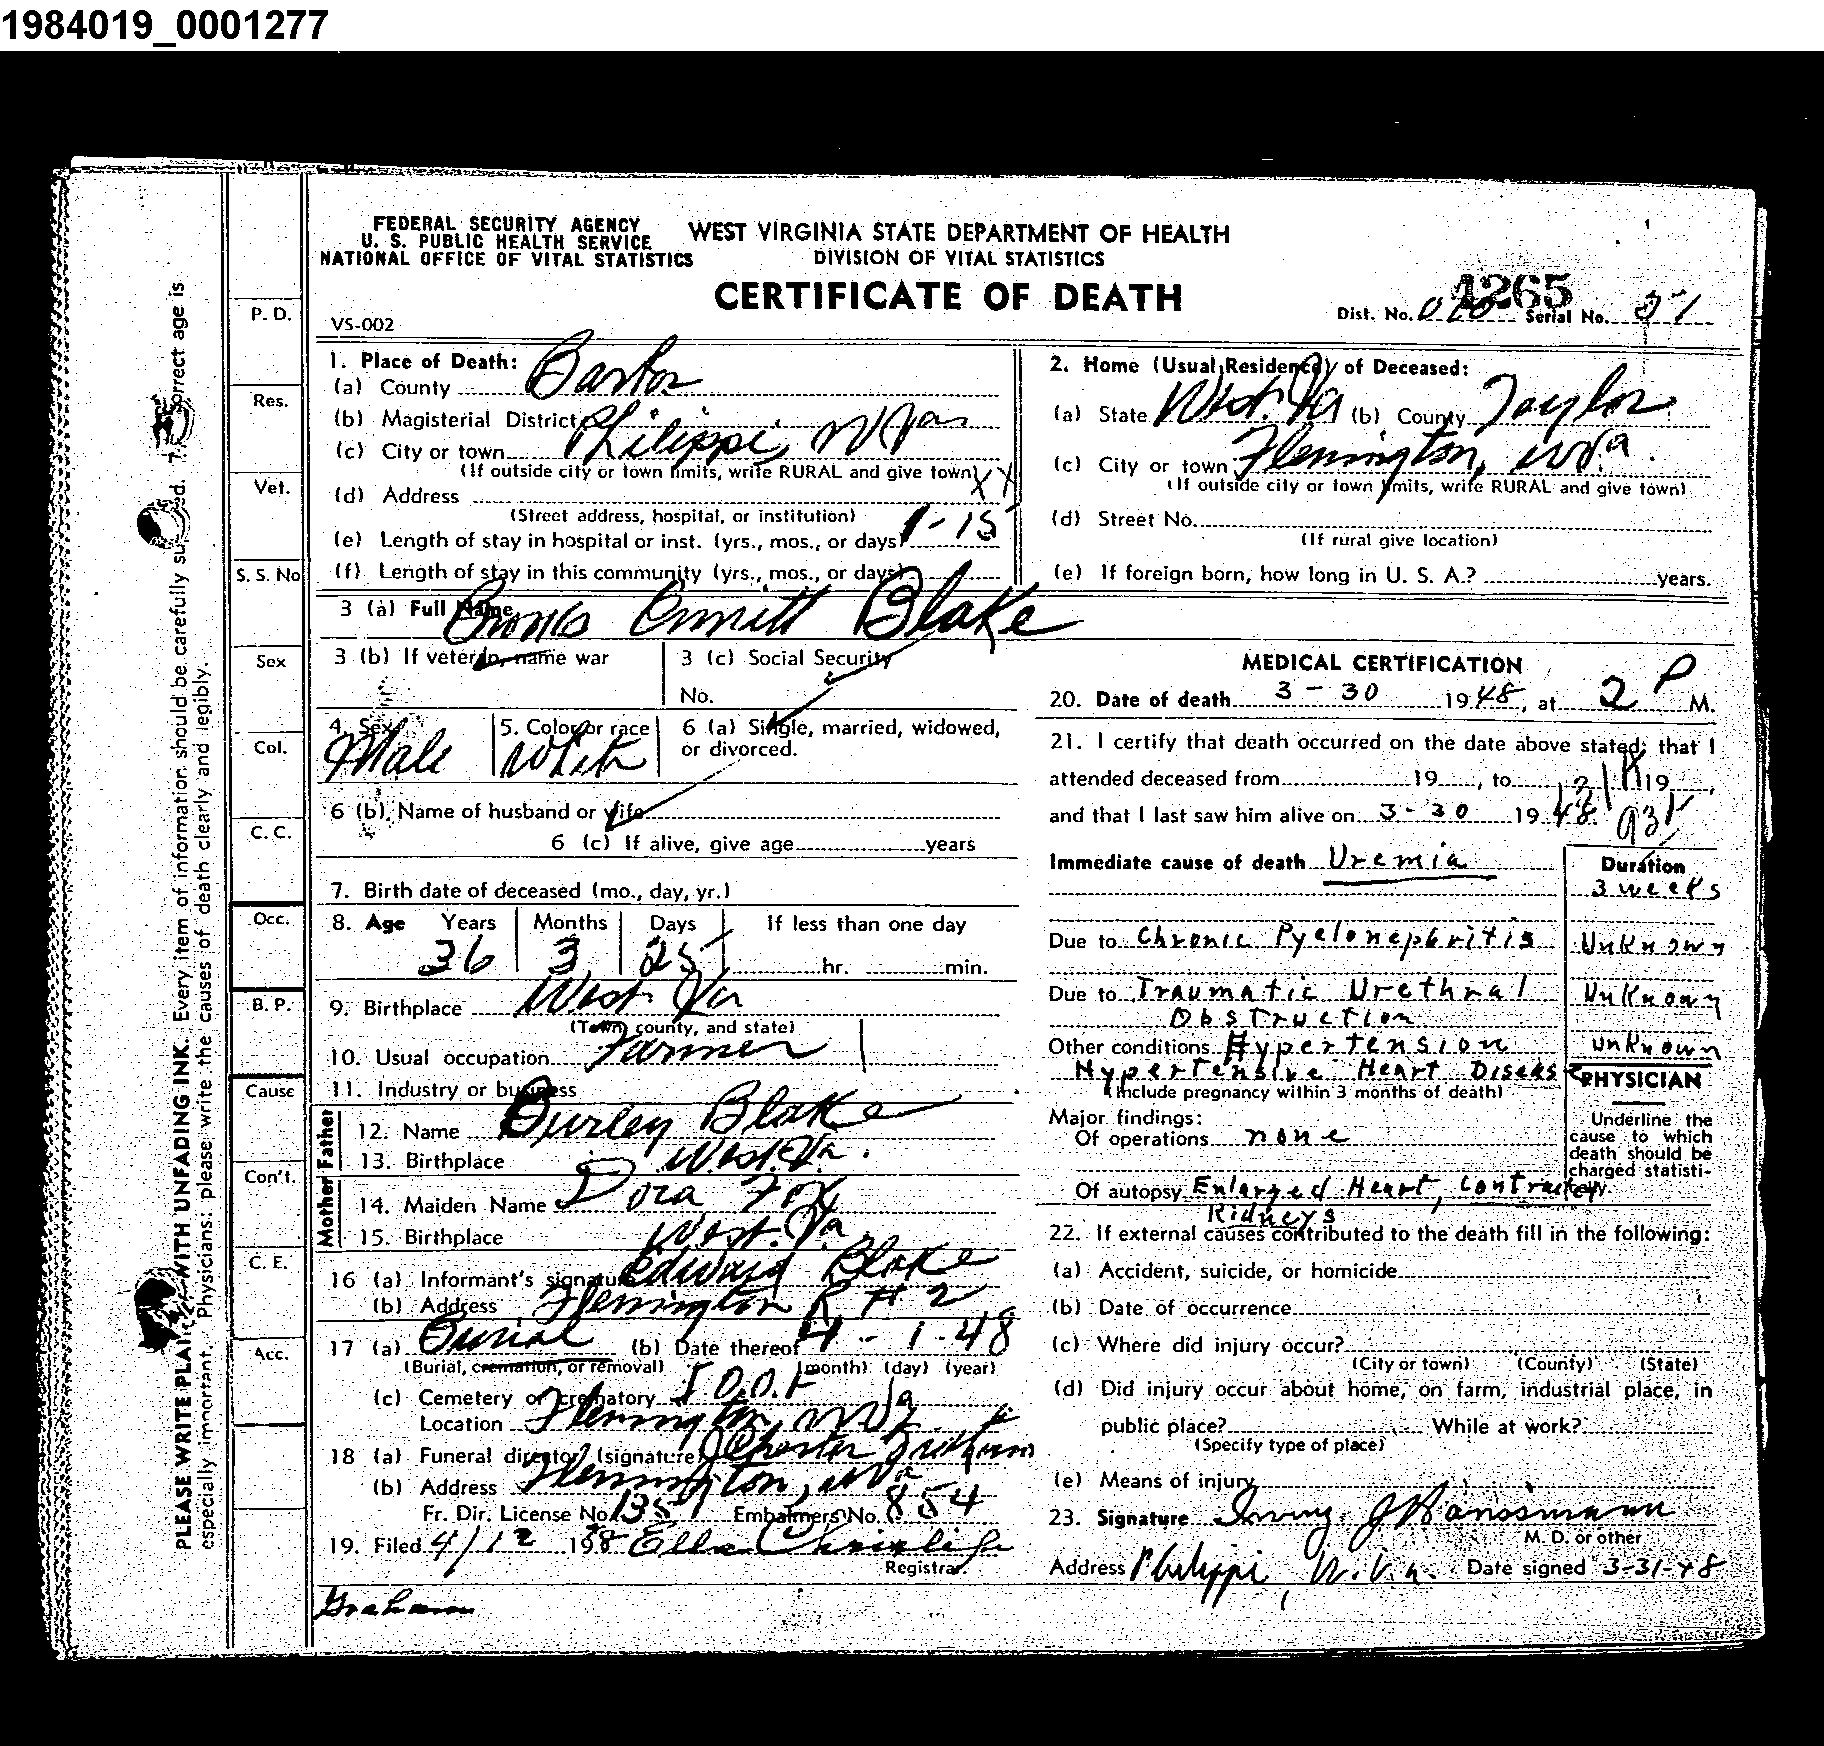 1984019_0001277
FEDERAL SECURITY AGENCY
U. S. PUBLIC HEALTH SERVICE
NATIONAL OFFICE OF VITAL STATISTICS
WEST VIRGINIA STATE DEPARTMENT OF HEALTH
DIVISION OF VITAL STATISTICS
CERTIFICATE OF DEATH
4265
VS-002
Dist. No. Serial No.
1. Place of Death:
(a) County
(b) Magisterial District
(c) City or town Philippi, W Va
(If outside city or town limits, write RURAL and give town) XX
(d) Address
(Street address, hospital, or institution)
(e) Length of stay in hospital or inst. (yrs., mos., or days) 1-15
(f) Length of stay in this community (yrs., mos., or days)
2. Home (Usual Residence) of Deceased:
(a) State West. Va (b) County Taylor
(c) City or town Flemington, W Va.
(If outside city or town limits, write RURAL and give town)
(d) Street No.
(If rural give location)
(e) If foreign born, how long in U. S. A.? years.
3 (a) Full Name Emmitt Blake
3 (b) If veteran, name war
3 (c) Social Security
No.
4. Sex Male
5. Color or race White
6 (a) Single, married, widowed,
or divorced.
6 (b) Name of husband or wife
6 (c) If alive, give age years
7. Birth date of deceased (mo., day, yr.)
8. Age Years Months Days If less than one day
36 3 25 hr. min.
9. Birthplace West. Va
(Town, county, and state)
10. Usual occupation Farmer
11. Industry or business
Father
12. Name Burley Blake
13. Birthplace West. Va.
Mother
14. Maiden Name Dora Fox
15. Birthplace West. Va.
16 (a) Informant's signature Edward Blake
(b) Address Flemington R # 2
17 (a) Burial (b) Date thereof 4-1-48
(Burial, cremation, or removal) (month) (day) (year)
(c) Cemetery or crematory I.O.O.F
Location Flemington, W Va
18 (a) Funeral director (signature) Chester Graham
(b) Address Flemington, W Va
Fr. Dir. License No. 1357 Embalmers No. 854
19. Filed 4/12 Ella
Registrar.
Graham
MEDICAL CERTIFICATION
20. Date of death 3-30 1948, at 2 P M.
21. I certify that death occurred on the date above stated; that I
attended deceased from 19 , to 19 ,
and that I last saw him alive on 3-30 1948.
Immediate cause of death Uremia
Duration
3 weeks
Due to Chronic Pyelonephritis Unknown
Due to Traumatic Urethral Unknown
Obstruction
Other conditions Hypertension unknown
Hypertensive Heart Disease
(Include pregnancy within 3 months of death)
Major findings:
Of operations none
Of autopsy Enlarged Heart, Contracted
Kidneys
PHYSICIAN
Underline the
cause to which
death should be
charged statisti-
cally.
22. If external causes contributed to the death fill in the following:
(a) Accident, suicide, or homicide
(b) Date of occurrence
(c) Where did injury occur?
(City or town) (County) (State)
(d) Did injury occur about home, on farm, industrial place, in
public place? While at work?
(Specify type of place)
(e) Means of injury
23. Signature Irving J
M. D. or other
Address Philippi, W. Va. Date signed 3-31-48
P. D.
Res.
Vet.
S. S. No
Sex
Col.
C. C.
Occ.
B. P.
Cause
Con't.
C. E.
Acc.
PLEASE WRITE PLAINLY WITH UNFADING INK. Every item of information should be carefully
especially important. Physicians: please write the causes of death clearly and legibly.